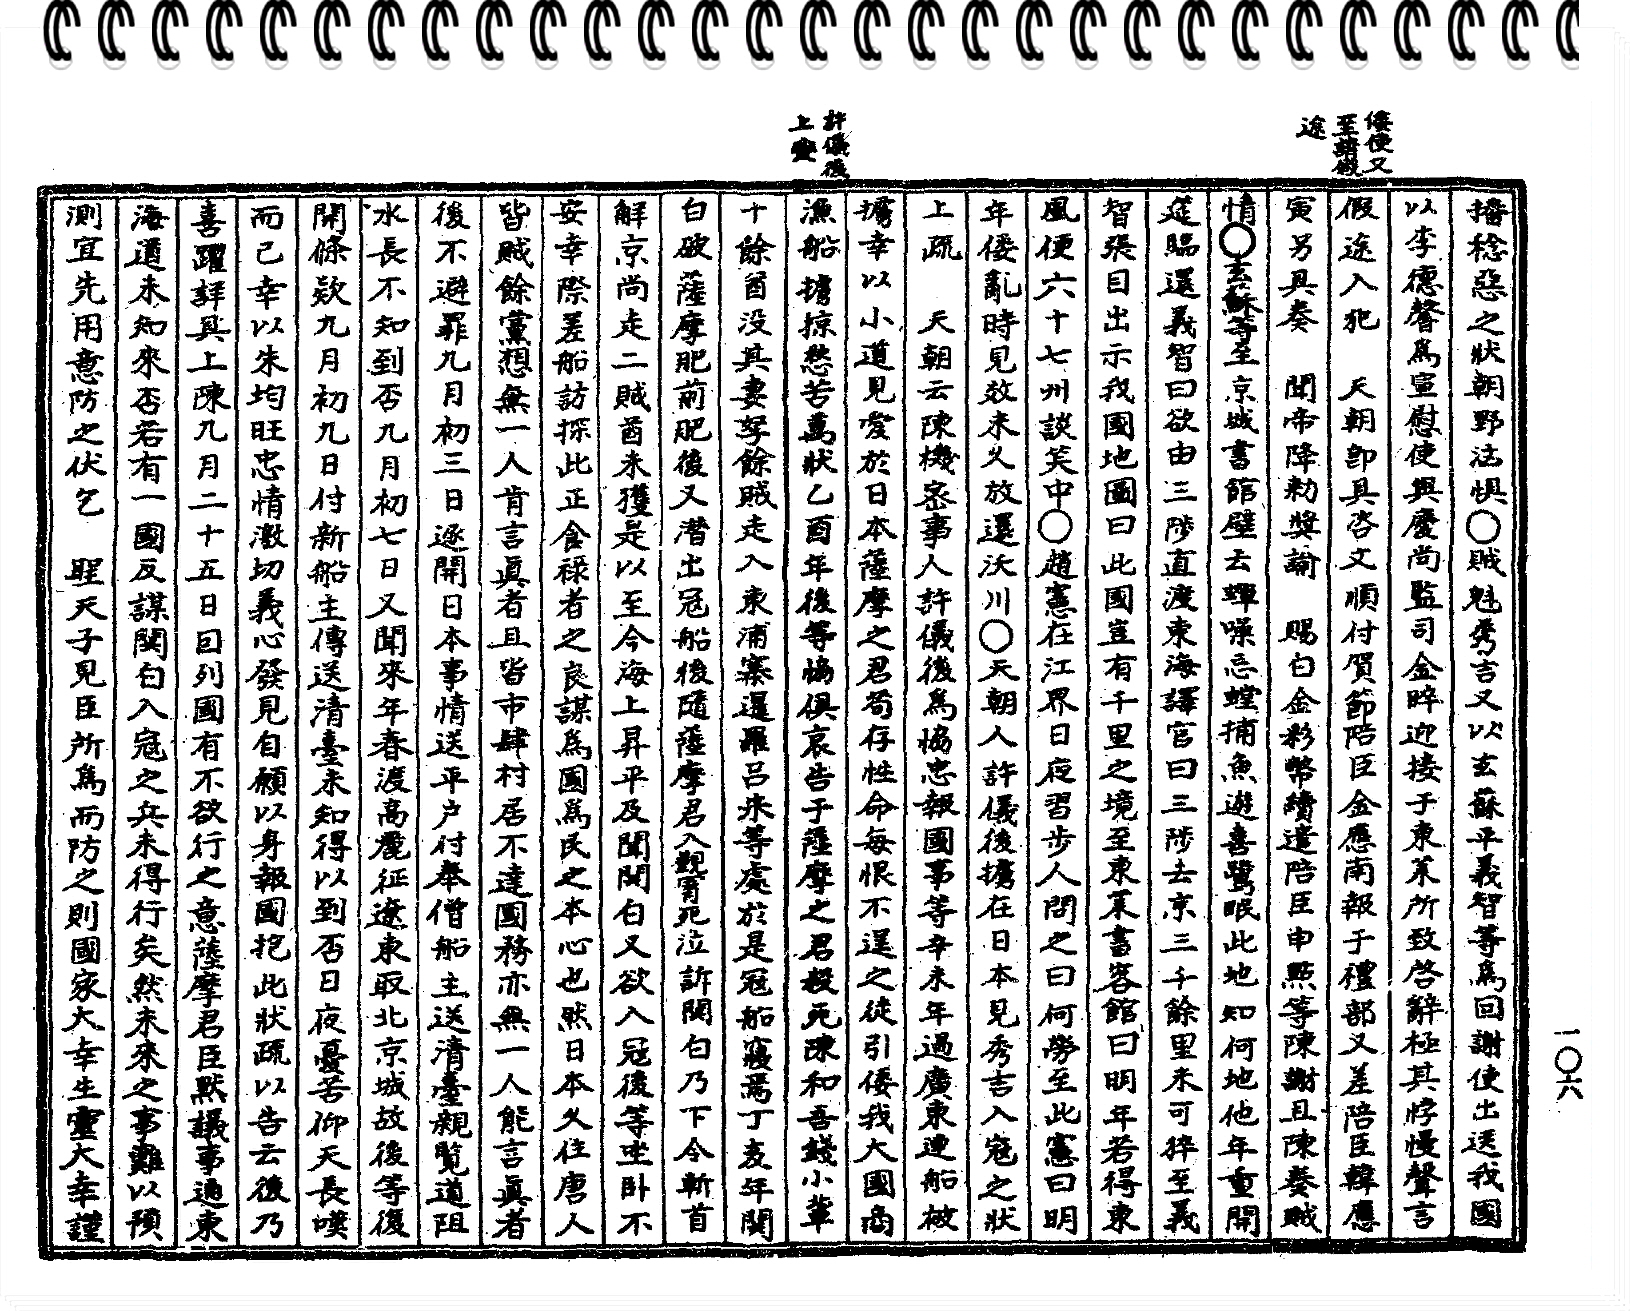 倭使又
至請假
途
許儀後
上變
播稔惡之狀朝野法惧○賊魁秀吉又以玄蘇平義智等爲回謝使出送我國
以李德馨爲宣慰使與慶尚監司金睟迎接于東萊所致啓辭極其悖慢聲言
假途入犯 天朝卽具咨文順付賀節陪臣金應南報于禮部又差陪臣韓應
寅另具奏 聞帝降勅獎諭 賜白金彩幣續遣陪臣申點等陳謝且陳奏賊
情○玄蘇等至京城書館壁云蟬噪忘螳捕魚遊喜鷺眠此地知何地他年重開
筵臨還義智曰欲由三陟直渡東海譯官曰三陟去京三千餘里未可猝至義
智張目出示我國地圖曰此國豈有千里之境至東萊書客館曰明年若得東
風便六十七州談笑中○趙憲在江界日夜習步人問之曰何勞至此憲曰明
年倭亂時見效未久放還沃川○天朝人許儀後擄在日本見秀吉入寇之狀
上疏 天朝云陳機密事人許儀後爲協忠報國事等辛未年過廣東連船被
擄幸以小道見愛於日本薩摩之君苟存性命每恨不逞之徒引倭我大國商
漁船擄掠愁苦萬狀乙酉年後等協俱哀告于薩摩之君殺死陳和吾錢小輩
十餘酋沒其妻孥餘賊走入東浦寨暹羅呂宋等處於是寇船寢焉丁亥年關
白破薩摩肥前肥後又潛出寇船後隨薩摩君入覲寗死泣訴關白乃下令斬首
解京尚走二賊酋未獲是以至今海上昇平及聞關白又欲入寇後等坐臥不
安幸際差船訪探此正食祿者之良謀爲國爲民之本心也然日本久住唐人
皆賊餘黨想無一人肯言眞者且皆市肆村居不達國務亦無一人能言眞者
後不避罪九月初三日逐開日本事情送平户付擧僧船主送清臺親覧道阻
水長不知到否九月初七日又聞來年春渡高麗征遼東取北京城故後等復
開條欵九月初九日付新船主傳送清臺未知得以到否日夜憂苦仰天長嘆
而已幸以朱均旺忠情激切義心發見自願以身報國抱此狀疏以告云後乃
喜躍詳具上陳九月二十五日回列國有不欲行之意薩摩君臣默議事通東
海道未知來否若有一國反謀關白入寇之兵未得行矣然未來之事難以預
測宜先用意防之伏乞 聖天子見臣所爲而防之則國家大幸生靈大幸謹
一〇六